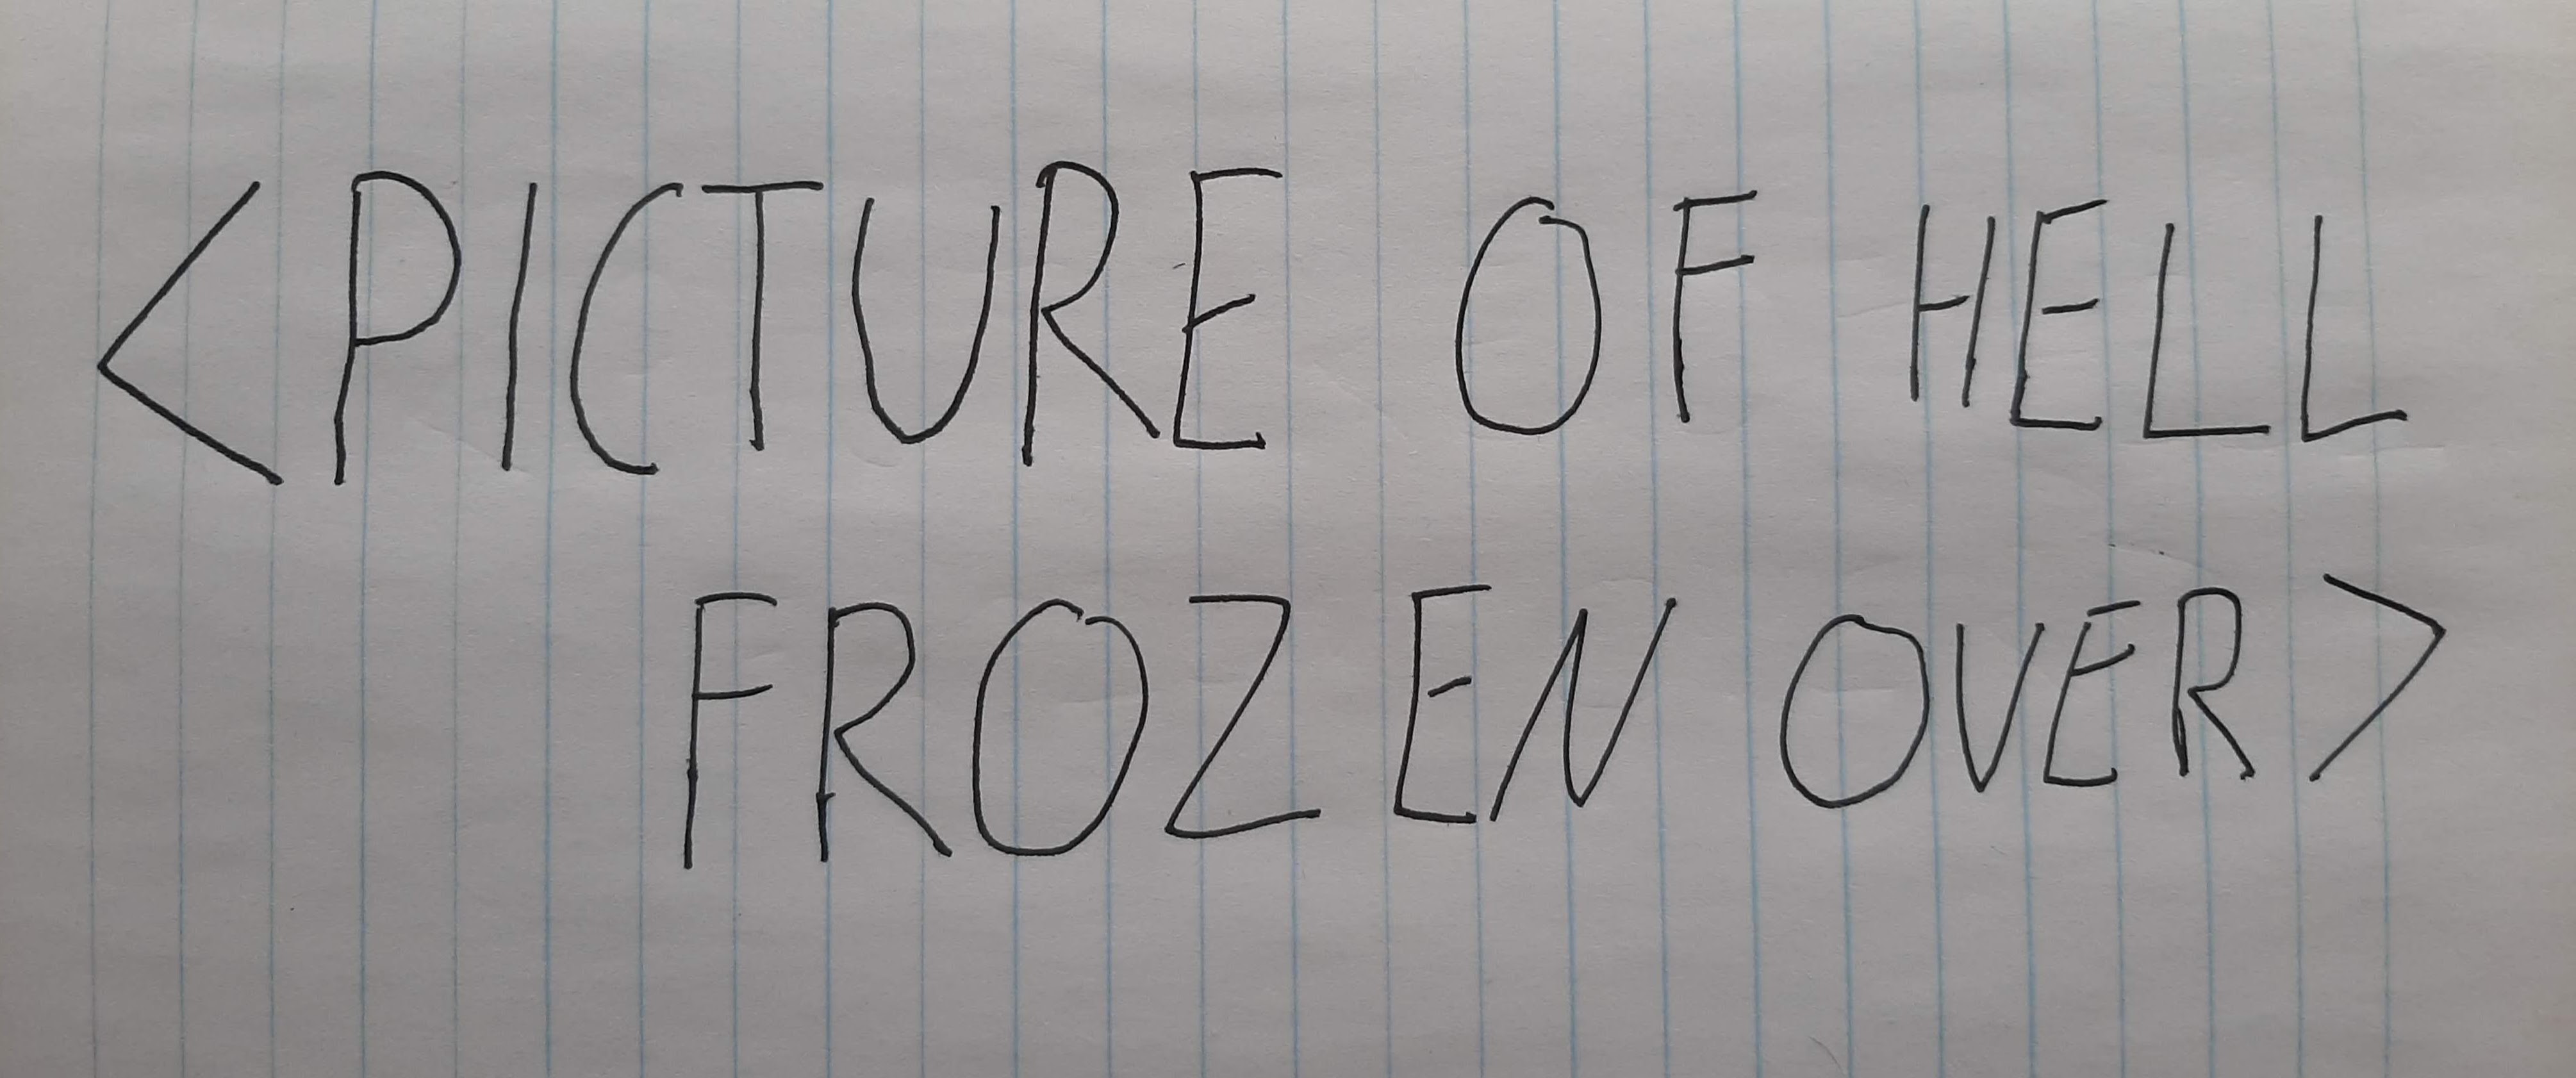 <PICTURE OF HELL
FROZEN OVER>